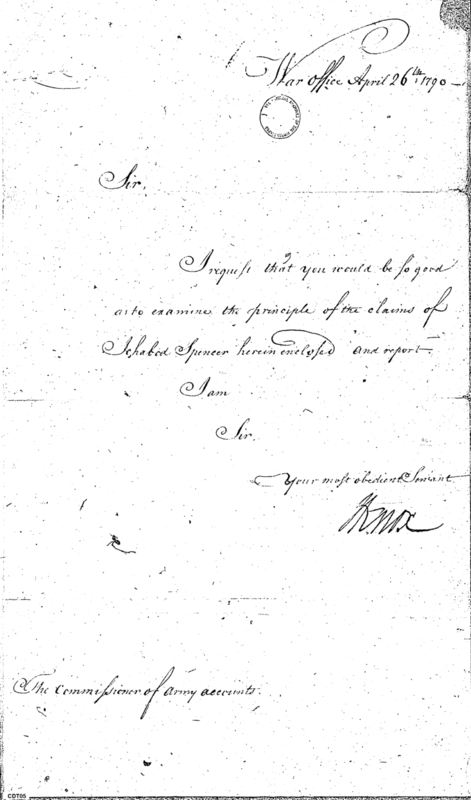 War office April 26th 1790
Sir,
I request that you would be so good
as to examine the principle of the claims of
Ichabod Spencer herein enclosed and report
I am
Sir,
Your most obedient Servant
HKnox
The commissioner of army accounts.
CDT05